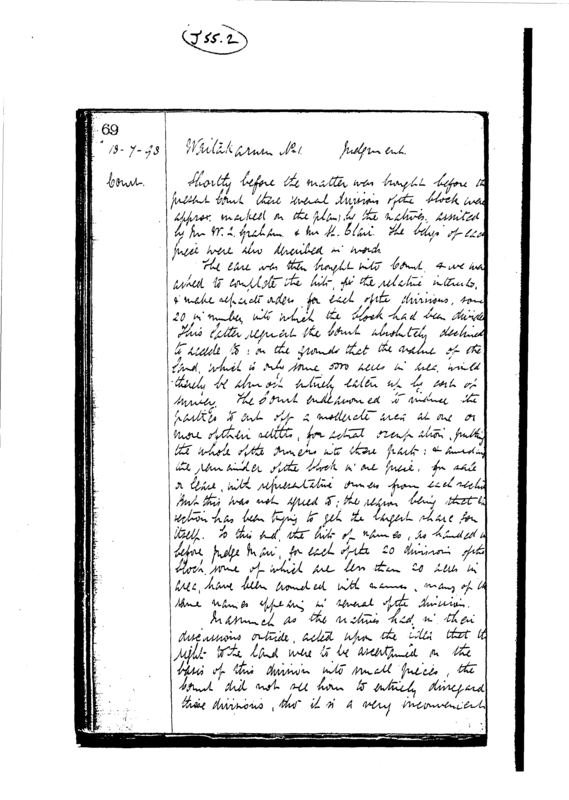 J55.2
69
13-7-93 No 1 Judgment.
Court. Shortly before the matter was brought before the
present Court these several divisions of the block were
approx. marked on the plan, by the natives, assisted
by Mr W. L. Graham & Mr St. Clair. The bdys of each
piece were also described in words.
The case was then brought into Court & we were
asked to complete the lists, fix the relative interests,
& make separate orders for each of the divisions, some
20 in number into which the block had been divided
This latter request the Court absolutely declined
to accede to: on the grounds that the value of the
land, which is only some 5000 acres in area, would
thereby be almost entirely eaten up by cost of
survey. The Court endeavoured to induce the
parties to cut off a moderate area at one or
more of their settlts, for actual occupation, putting
the whole of the owners into those parts: &
the remainder of the block in one piece, for sale
or lease, with representative owners from each section
But this was not agreed to; the reason being that
section has been trying to get the largest share for
itself. To this end, the lists of names, as handed in
before Judge Mair, for each of the 20 divisions of the
block, some of which are less than 20 acres in
area, have been crowded with names, many of the
same names appearing in several of the divisions.
Inasmuch as the natives had, in their
discussions outside, acted upon the idea that the
right to the land were to be ascertained on the
basis of this division into small pieces, the
Court did not see how to entirely disregard
these divisions, tho' it is a very inconvenient